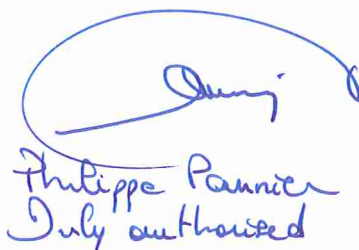 Philippe Pannier
Duly authorised